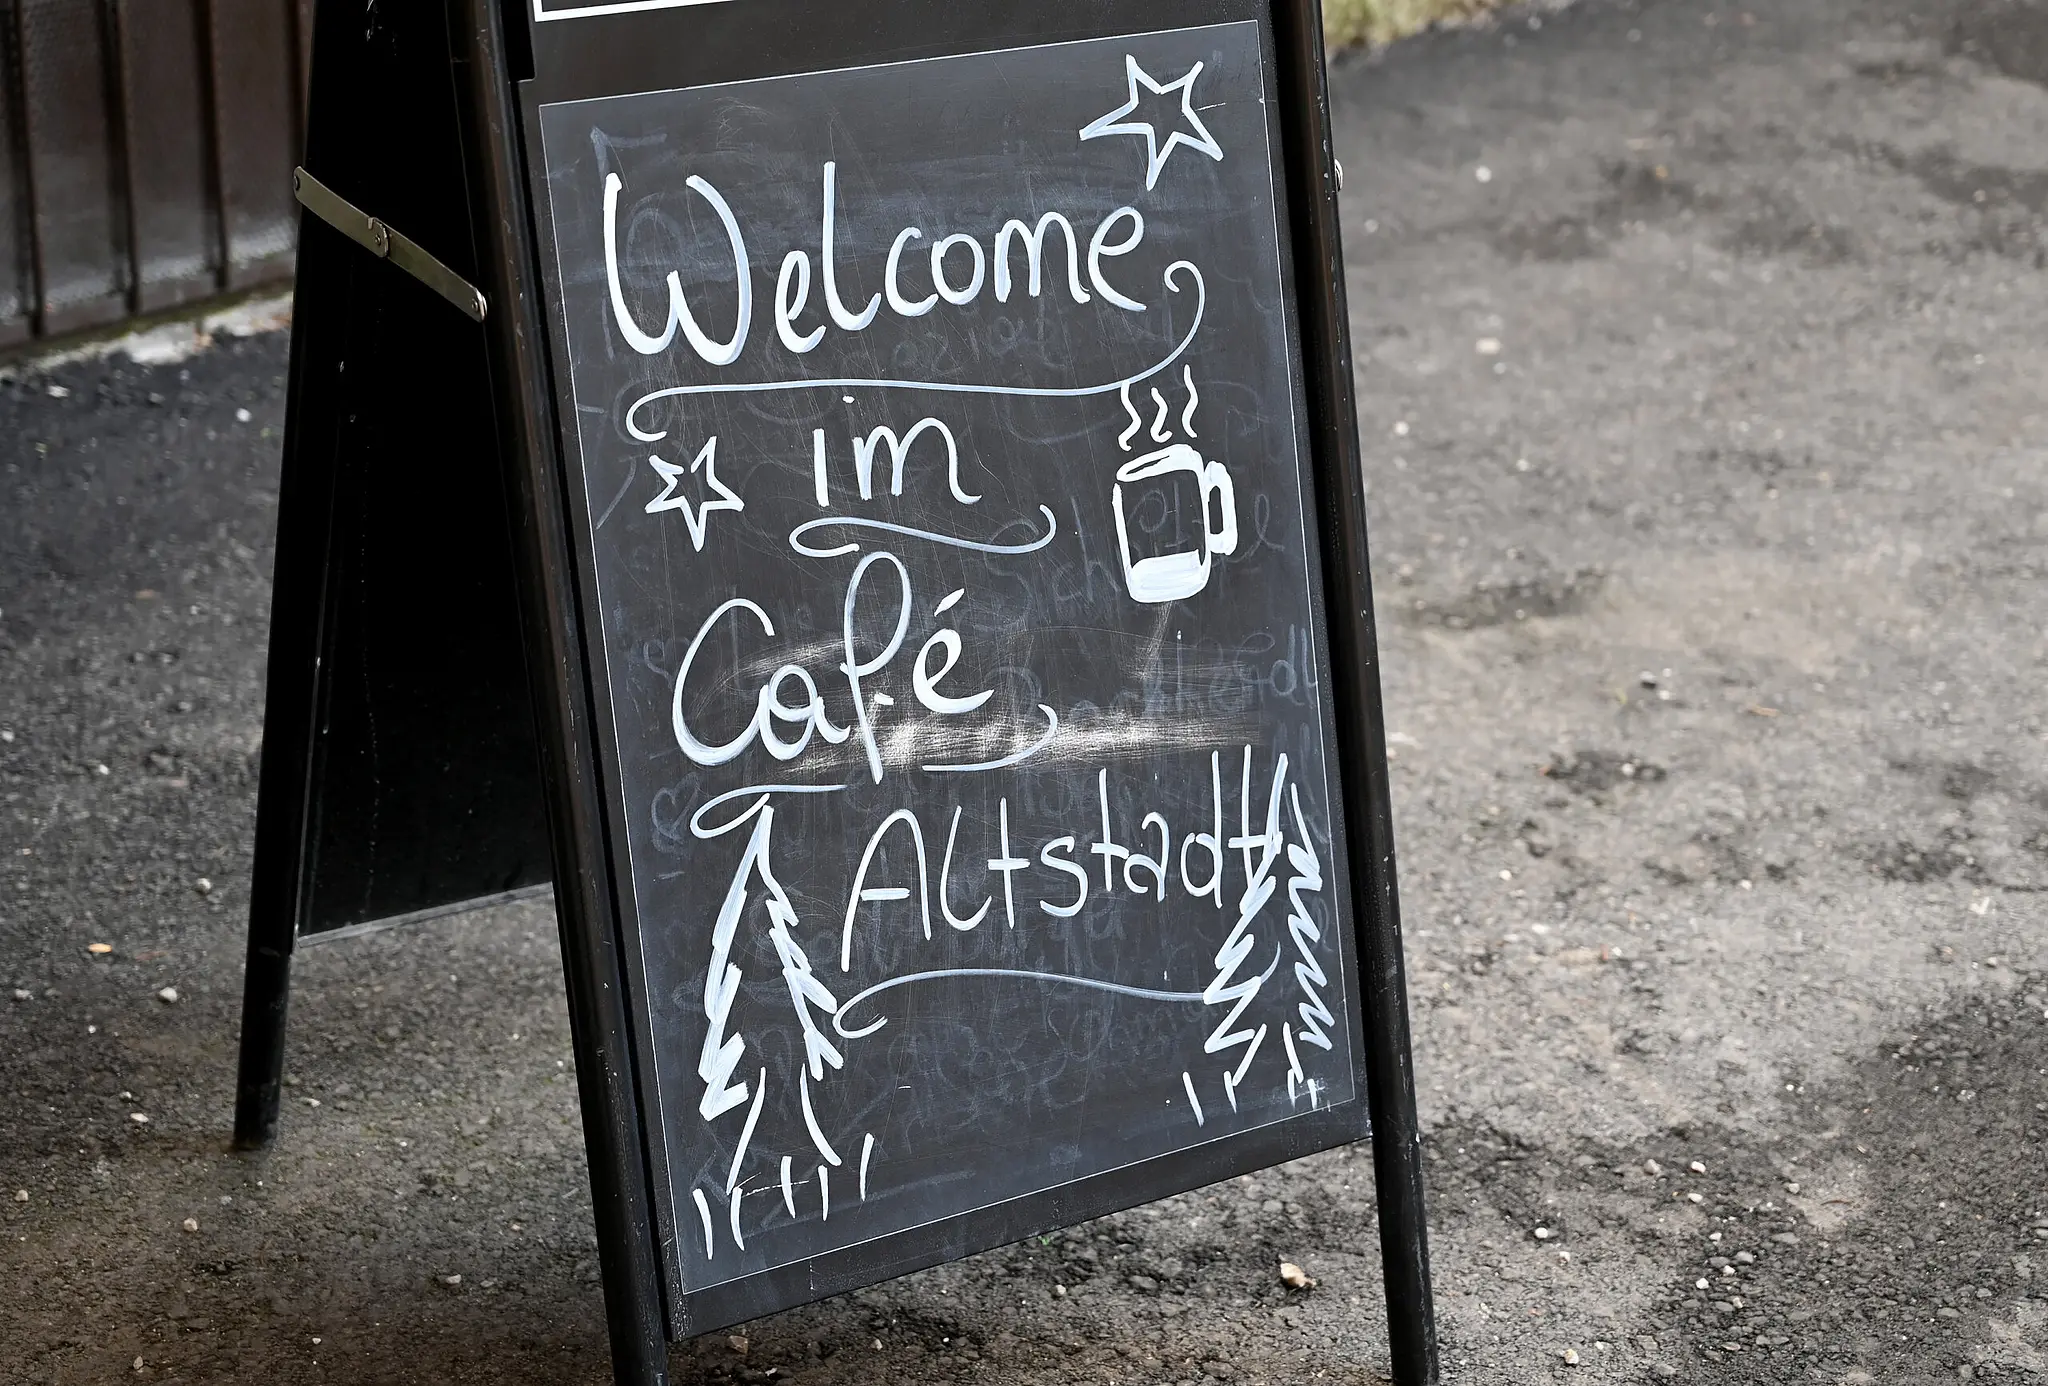 Welcome
im
Café
Altstadt